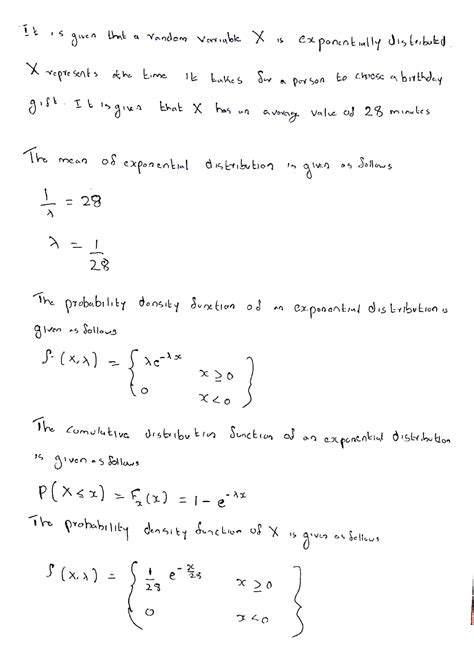 It is given that a random variable X is exponentially distributed.
X represents the time it takes for a person to choose a birthday
gift. It is given that X has an average value of 28 minutes
The mean of exponential distribution is given as follows
1/λ = 28
λ = 1/28
The probability density function of an exponential distribution is
given as follows
f(x,λ) = { λe^-λx x ≥ 0
0 x < 0 }
The cumulative distribution function of an exponential distribution
is given as follows
P(X ≤ x) = F_x(x) = 1 - e^-λx
The probability density function of X is given as follows
f(x,λ) = { 1/28 e^-x/28 x ≥ 0
0 x < 0 }